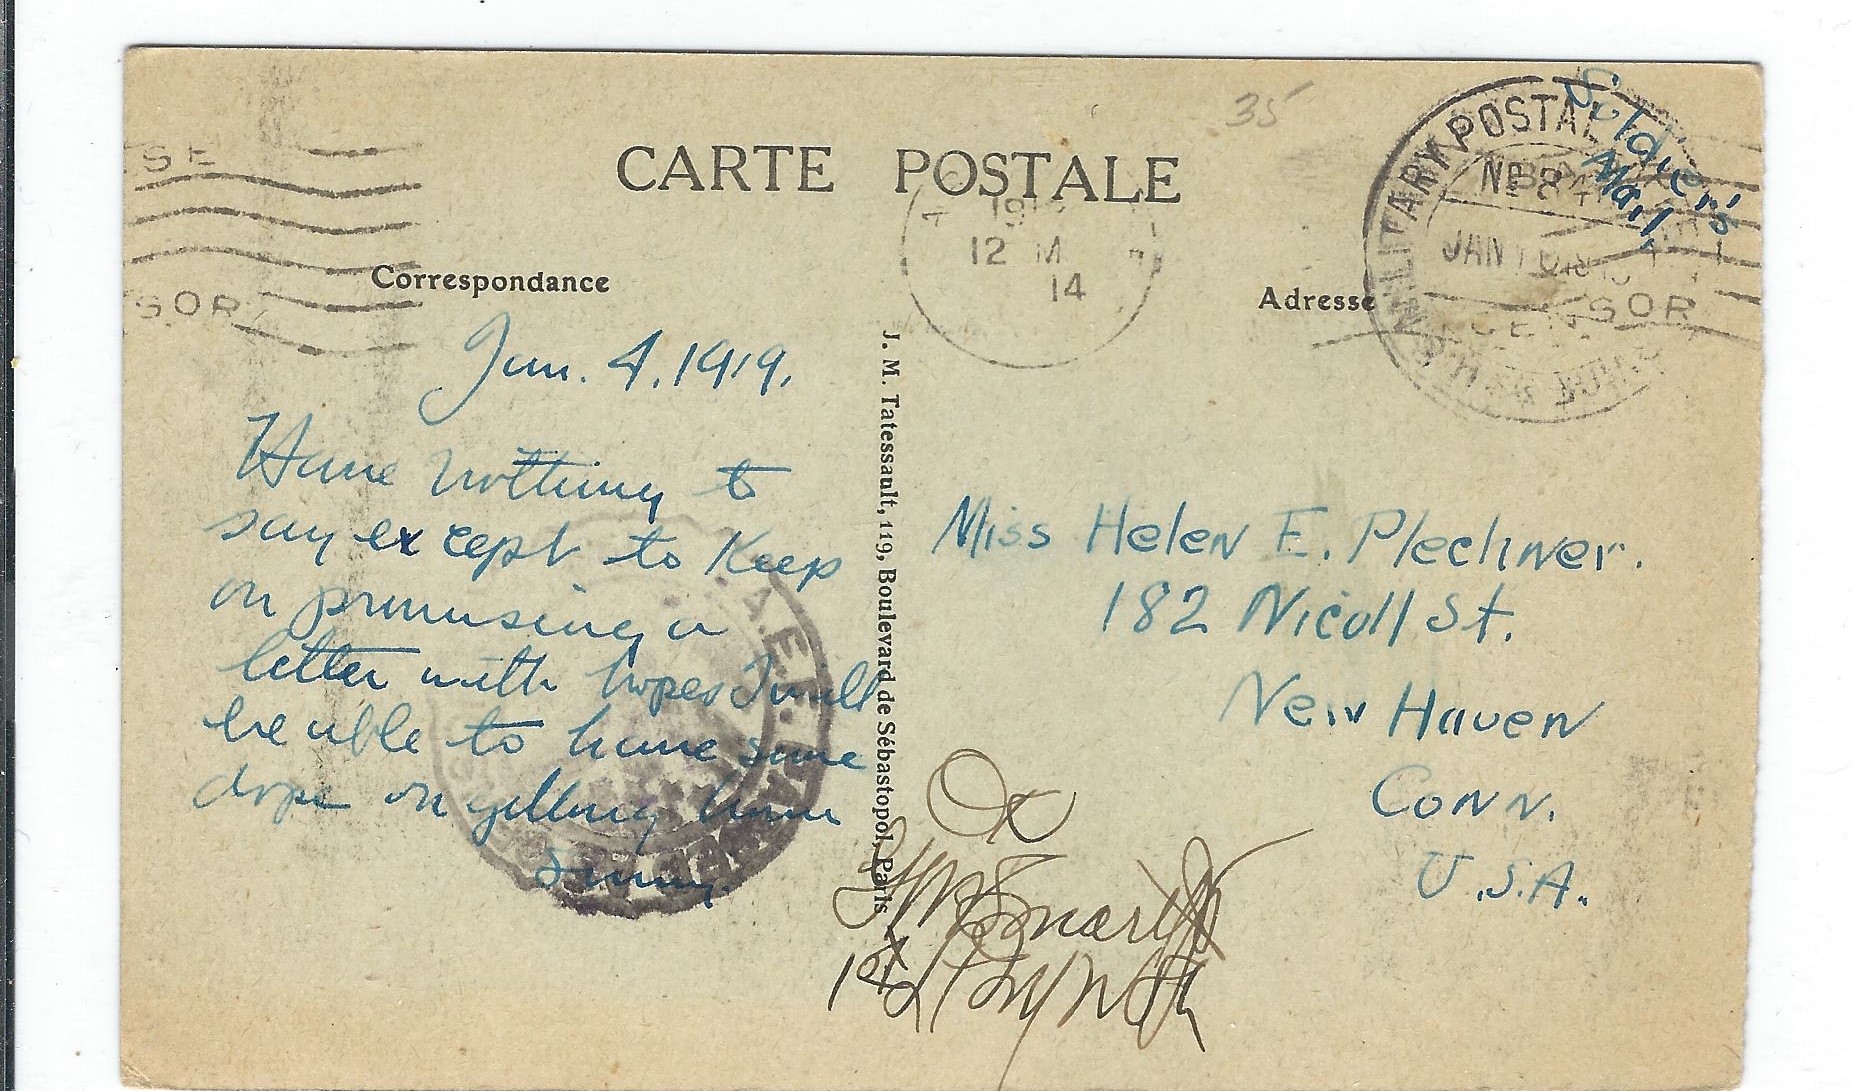 35
Soldier's
Mail,
CARTE POSTALE
MILITARY POSTAL
No 84
JAN 10 1919
12 M
14
SOR
SOR
Correspondance
Adresse
Jan. 4, 1919.
Have nothing to
say except to Keep
on promising a
letter with hopes I will
be able to have some
dope on getting home
J. M. Tatessault, 119, Boulevard de Sébastopol, Paris
A.E.F. PASSED AS CENSORED
Miss Helen E. Plechner.
182 Nicoll St.
New Haven
Conn.
U.S.A.
OK
1st Lt